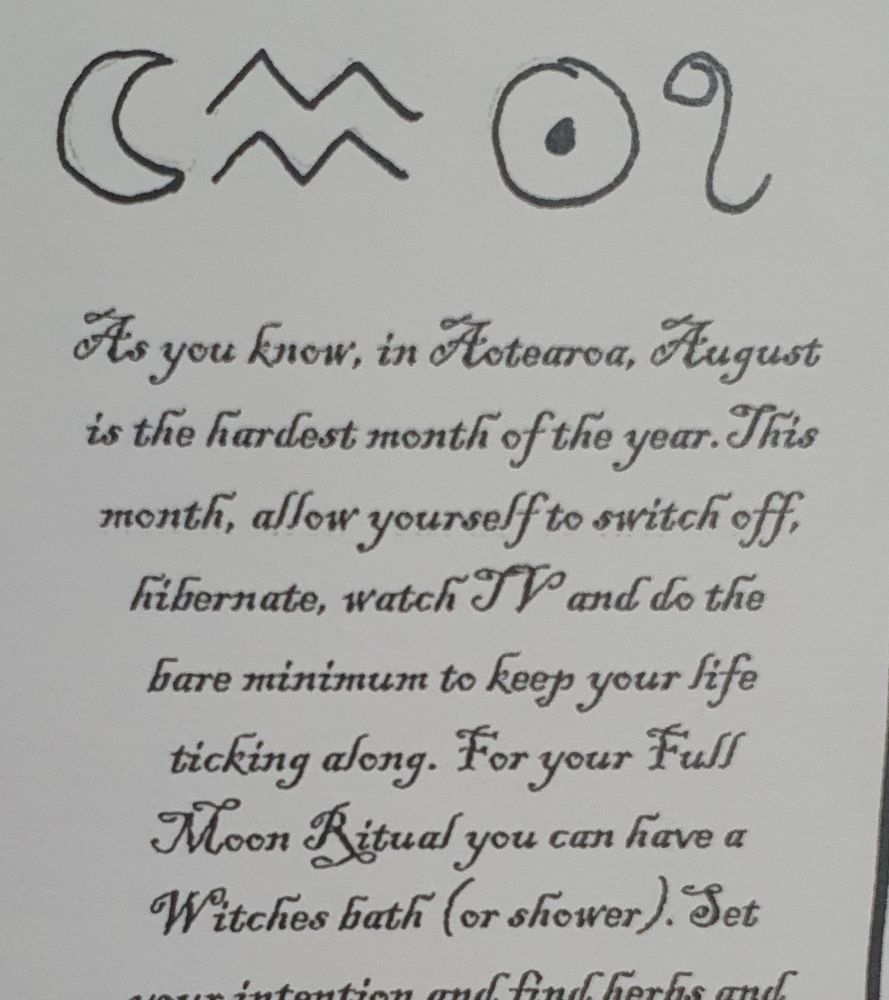 As you know, in Aotearoa, August
is the hardest month of the year. This
month, allow yourself to switch off,
hibernate, watch TV and do the
bare minimum to keep your life
ticking along. For your Full
Moon Ritual you can have a
Witches bath (or shower). Set
your intention and find herbs and